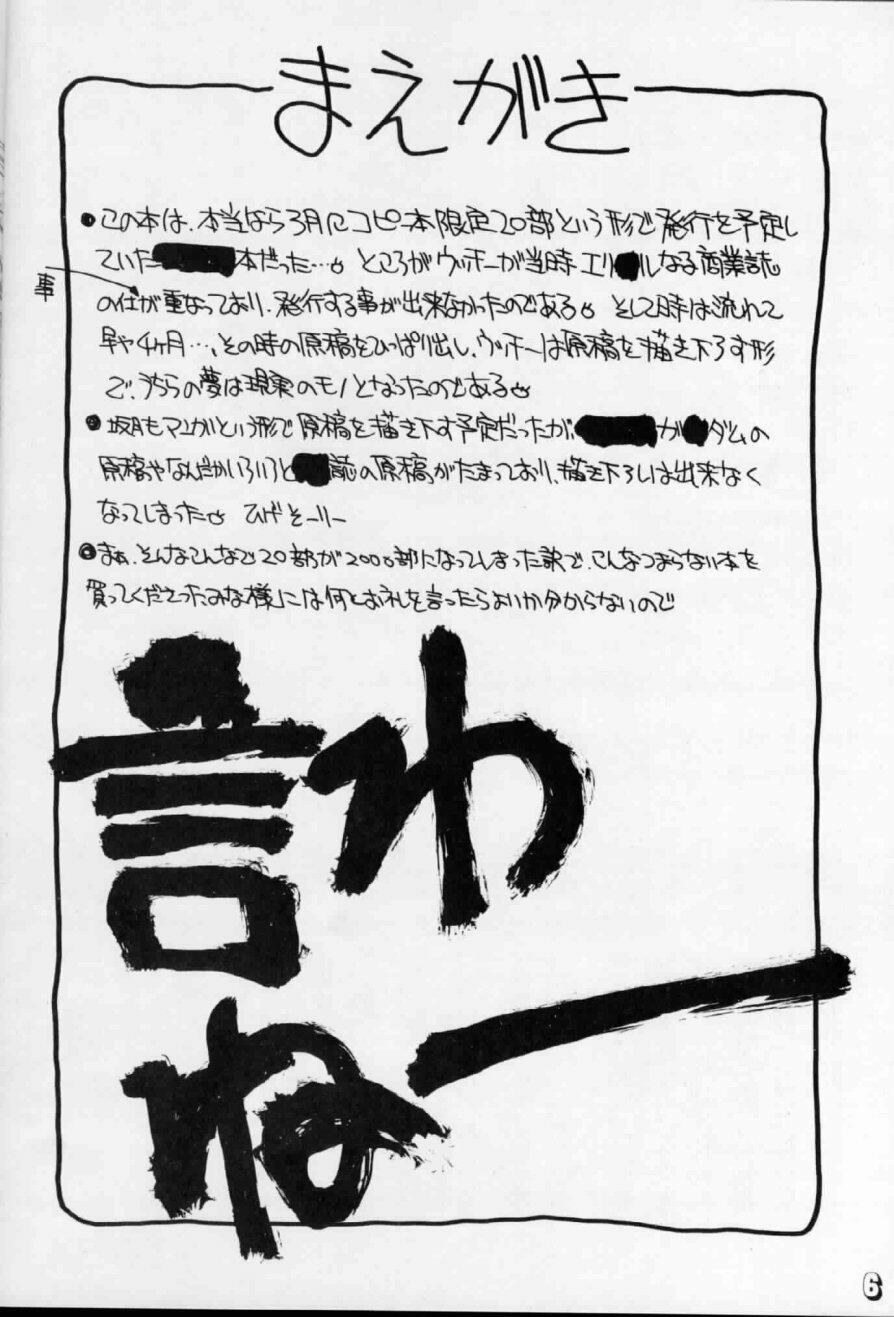 まえがき
●この本は、本当なら3月にコピー本限定20部という形で発行を予定し
ていた本だった…。ところがウッホーが当時エリルなる商業誌
事
の仕が重なっており、発行する事が出来なかったのである。そして時は流れて
早や4ヶ月…、その時の原稿をひっぱり出し、ウッホーは原稿を描き下ろす形
で、うちらの夢は現実のモノとなったのである。
●坂月もマンガという形で原稿を描き下す予定だったが、がダムの
原稿やなんだかいろいろと誌の原稿がたまっており、描き下ろしは出来なく
なってしまった。ひげそーりー
●まぁ、そんなこんなで20部が2000部になってしまった訳で、こんなつまらない本を
買ってくださったみな様には何とお礼を言ったらよいか分からないので
言わねー
6